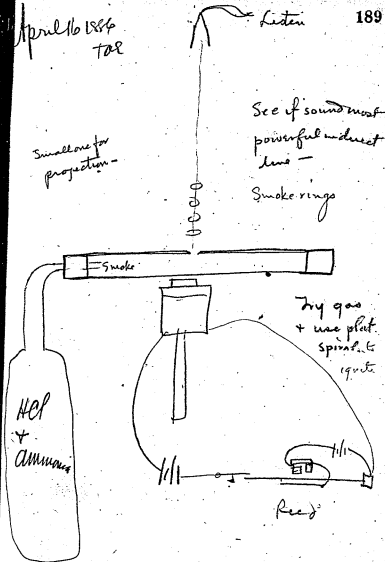 April 16 1886
TAE
Listen
189
See if sound most
powerful in direct
line —
Small one for
projection —
Smoke rings
Smoke
Try gas
+ use plat.
spiral to
ignite
HCl
+
Ammonia
Reed